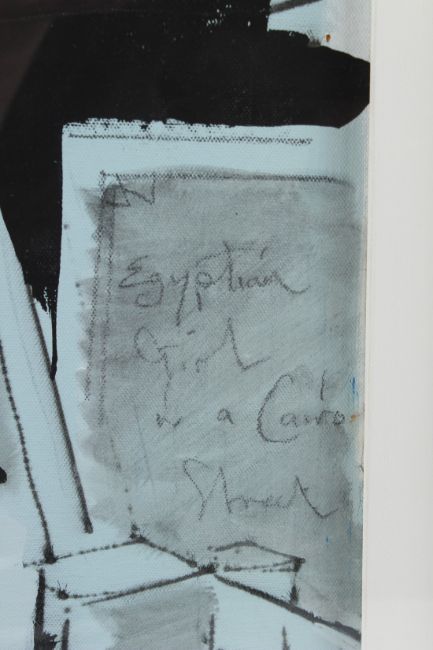 Egyptian
Girl
in a Cairo
Street